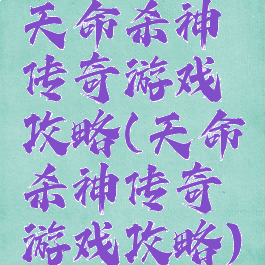 天命杀神
传奇游戏
攻略(天命
杀神传奇
游戏攻略)